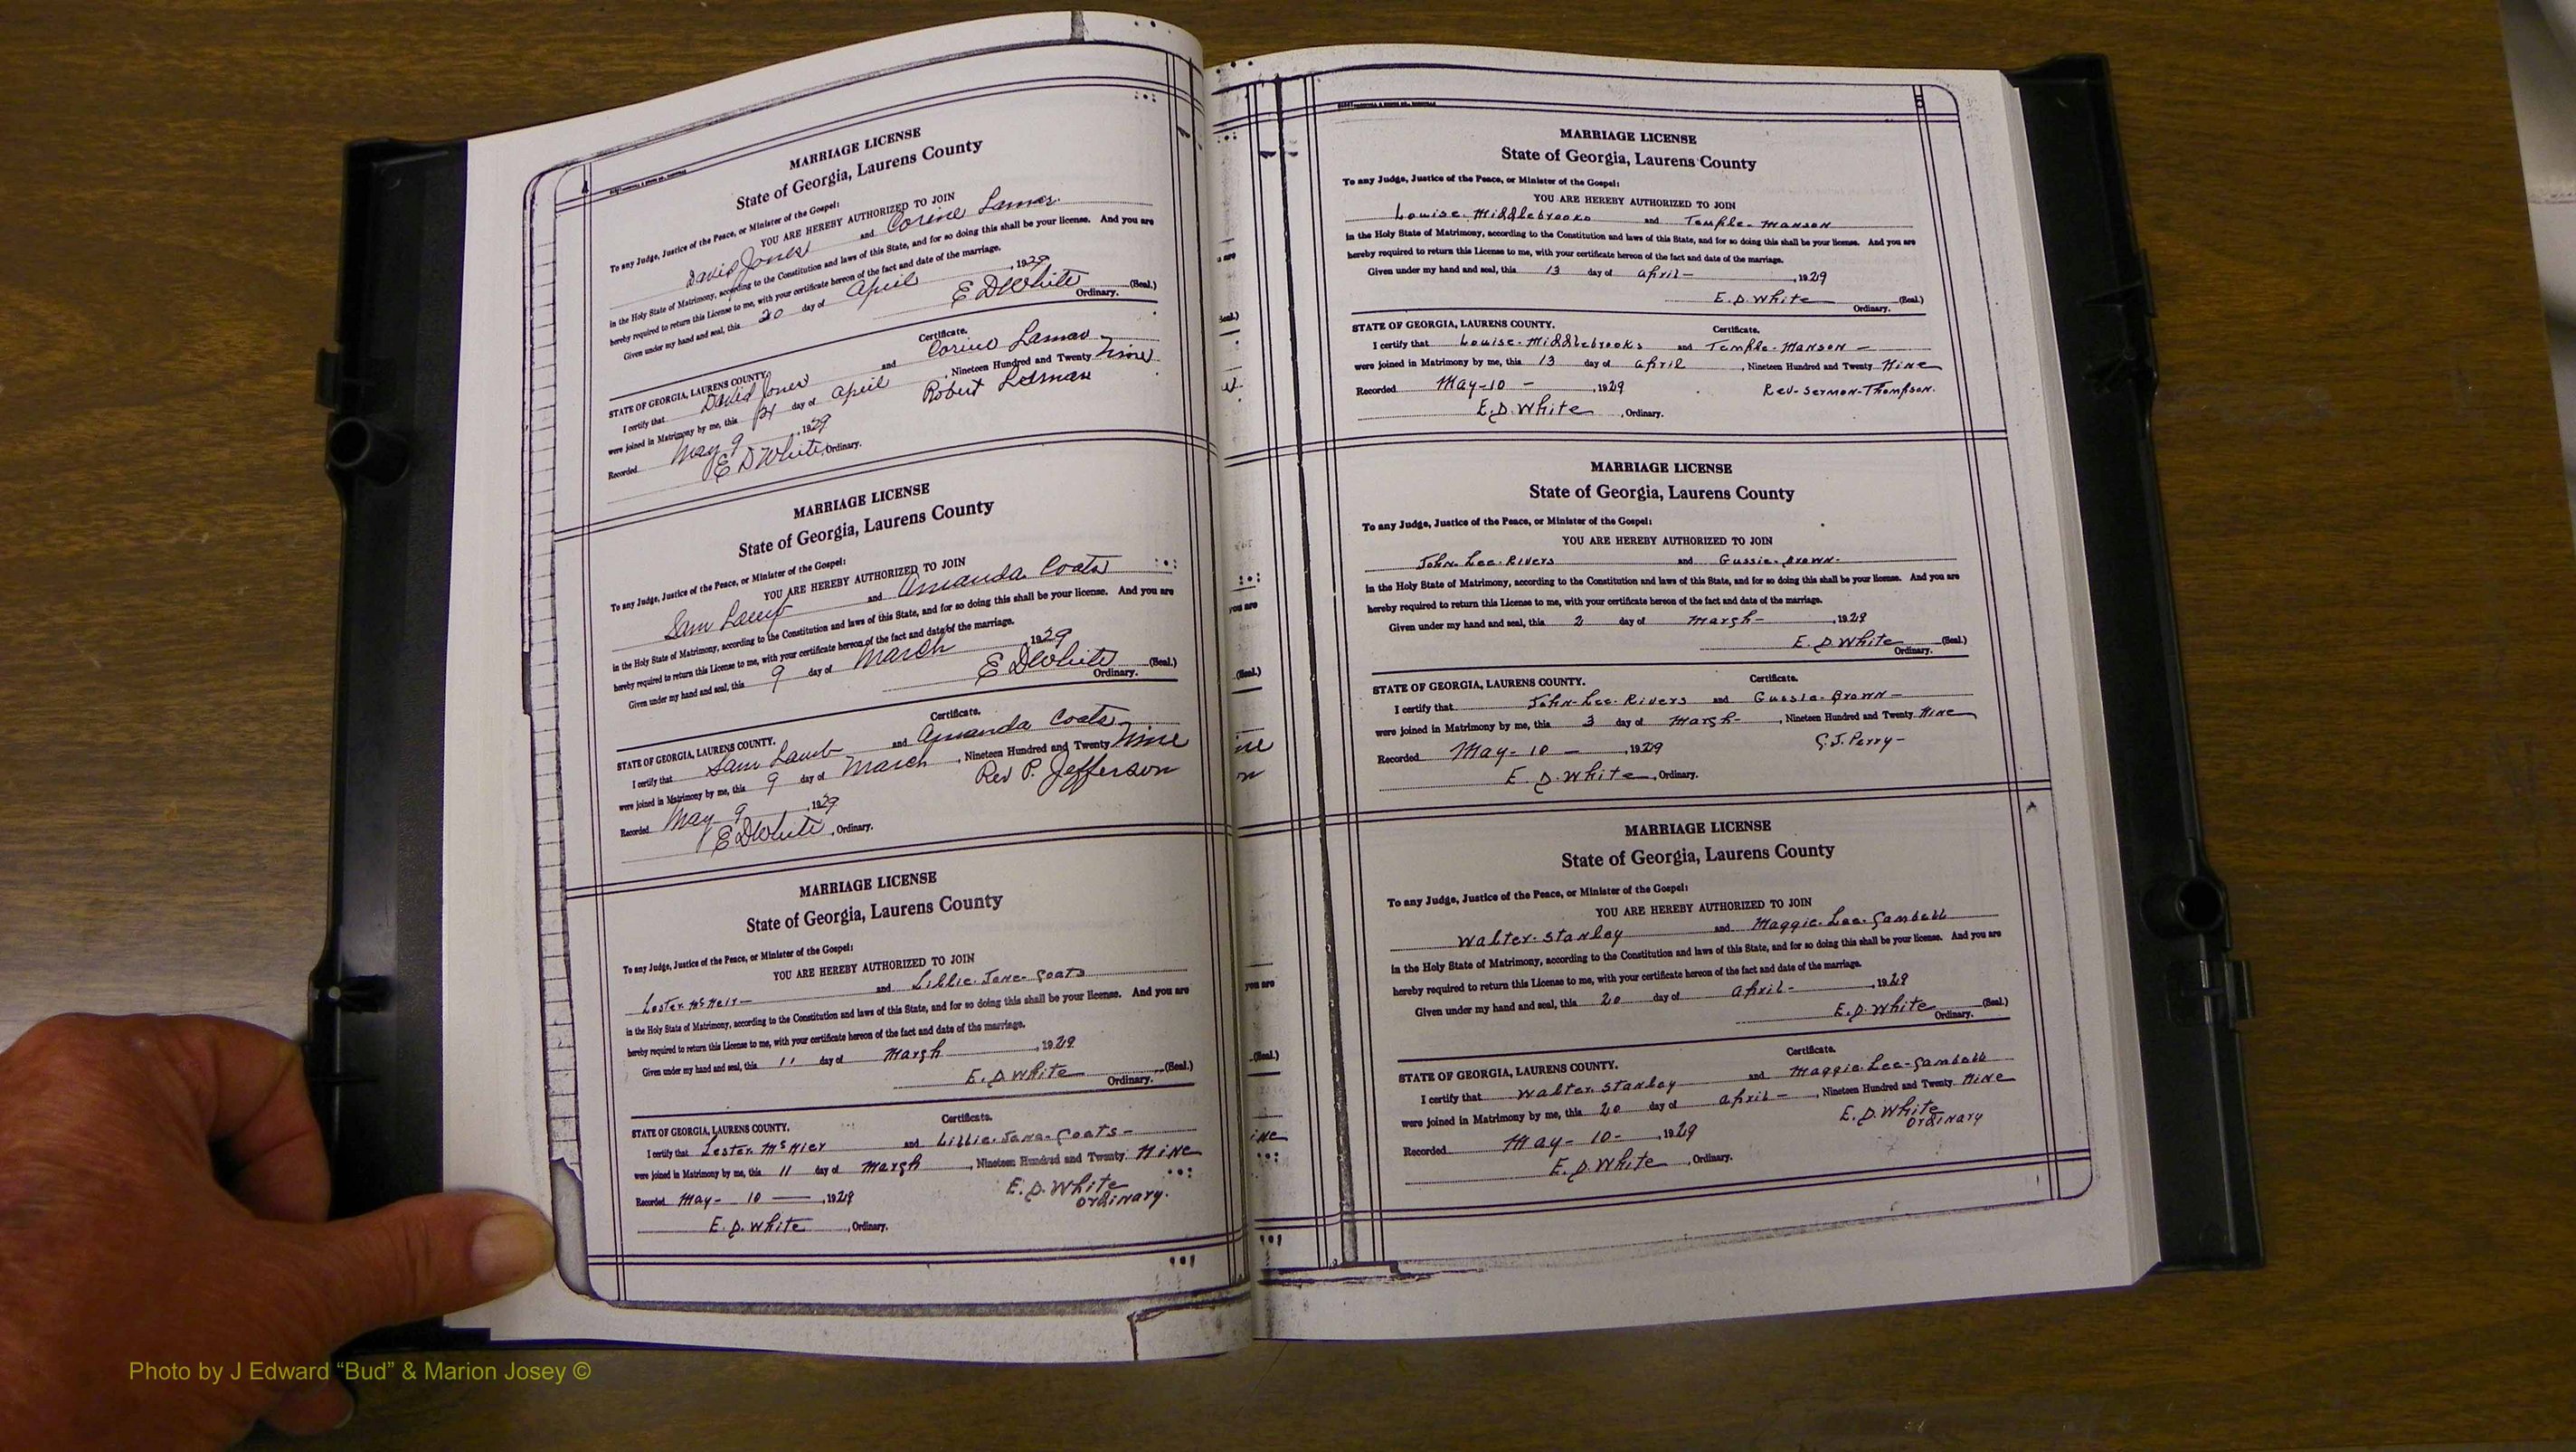 4
MARRIAGE LICENSE
State of Georgia, Laurens County
To any Judge, Justice of the Peace, or Minister of the Gospel:
YOU ARE HEREBY AUTHORIZED TO JOIN
David Jones and Corine Lamar
in the Holy State of Matrimony, according to the Constitution and laws of this State, and for so doing this shall be your license. And you are
hereby required to return this License to me, with your certificate hereon of the fact and date of the marriage.
Given under my hand and seal, this 20 day of April, 1929
E D White (Seal.)
Ordinary.
Certificate.
STATE OF GEORGIA, LAURENS COUNTY.
I certify that David Jones and Corine Lamar
were joined in Matrimony by me, this 21 day of April, Nineteen Hundred and Twenty Nine
Recorded May 9, 1929 Robert
E D White, Ordinary.
MARRIAGE LICENSE
State of Georgia, Laurens County
To any Judge, Justice of the Peace, or Minister of the Gospel:
YOU ARE HEREBY AUTHORIZED TO JOIN
Sam Lamb and Amanda Coats
in the Holy State of Matrimony, according to the Constitution and laws of this State, and for so doing this shall be your license. And you are
hereby required to return this License to me, with your certificate hereon of the fact and date of the marriage.
Given under my hand and seal, this 9 day of March, 1929
E D White (Seal.)
Ordinary.
Certificate.
STATE OF GEORGIA, LAURENS COUNTY.
I certify that Sam Lamb and Amanda Coats
were joined in Matrimony by me, this 9 day of March, Nineteen Hundred and Twenty Nine
Recorded May 9, 1929 Rev P. Jefferson
E D White, Ordinary.
MARRIAGE LICENSE
State of Georgia, Laurens County
To any Judge, Justice of the Peace, or Minister of the Gospel:
YOU ARE HEREBY AUTHORIZED TO JOIN
Lester McNeir- and Lillie-Jane-Coats
in the Holy State of Matrimony, according to the Constitution and laws of this State, and for so doing this shall be your license. And you are
hereby required to return this License to me, with your certificate hereon of the fact and date of the marriage.
Given under my hand and seal, this 11 day of March, 1929
E. D. White (Seal.)
Ordinary.
Certificate.
STATE OF GEORGIA, LAURENS COUNTY.
I certify that Lester McNier and Lillie-Jane-Coats-
were joined in Matrimony by me, this 11 day of March, Nineteen Hundred and Twenty Nine
Recorded May- 10 —, 1929 E. D. White
Ordinary.
E. D. White, Ordinary.
5
MARRIAGE LICENSE
State of Georgia, Laurens County
To any Judge, Justice of the Peace, or Minister of the Gospel:
YOU ARE HEREBY AUTHORIZED TO JOIN
Louise-Middlebrooks and Temple-Manson
in the Holy State of Matrimony, according to the Constitution and laws of this State, and for so doing this shall be your license. And you are
hereby required to return this License to me, with your certificate hereon of the fact and date of the marriage.
Given under my hand and seal, this 13 day of April-, 1929
E. D. White (Seal.)
Ordinary.
STATE OF GEORGIA, LAURENS COUNTY. Certificate.
I certify that Louise-Middlebrooks and Temple-Manson-
were joined in Matrimony by me, this 13 day of April, Nineteen Hundred and Twenty Nine
Recorded May-10-, 1929 Rev-Sermon-Thompson.
E. D. White, Ordinary.
MARRIAGE LICENSE
State of Georgia, Laurens County
To any Judge, Justice of the Peace, or Minister of the Gospel:
YOU ARE HEREBY AUTHORIZED TO JOIN
John-Lee-Rivers and Gussie-Brown-
in the Holy State of Matrimony, according to the Constitution and laws of this State, and for so doing this shall be your license. And you are
hereby required to return this License to me, with your certificate hereon of the fact and date of the marriage.
Given under my hand and seal, this 2 day of March-, 1929
E. D. White (Seal.)
Ordinary.
STATE OF GEORGIA, LAURENS COUNTY. Certificate.
I certify that John-Lee-Rivers and Gussie-Brown-
were joined in Matrimony by me, this 3 day of March-, Nineteen Hundred and Twenty Nine
Recorded May-10-, 1929 Perry-
E. D. White, Ordinary.
MARRIAGE LICENSE
State of Georgia, Laurens County
To any Judge, Justice of the Peace, or Minister of the Gospel:
YOU ARE HEREBY AUTHORIZED TO JOIN
Walter-Stanley and Maggie-Lee-Cambell
in the Holy State of Matrimony, according to the Constitution and laws of this State, and for so doing this shall be your license. And you are
hereby required to return this License to me, with your certificate hereon of the fact and date of the marriage.
Given under my hand and seal, this 20 day of April-, 1929
E. D. White (Seal.)
Ordinary.
STATE OF GEORGIA, LAURENS COUNTY. Certificate.
I certify that Walter-Stanley and Maggie-Lee-Cambell
were joined in Matrimony by me, this 20 day of April-, Nineteen Hundred and Twenty Nine
Recorded May- 10-, 1929 E. D. White
Ordinary
E. D. White, Ordinary.
Photo by J Edward “Bud” & Marion Josey ©